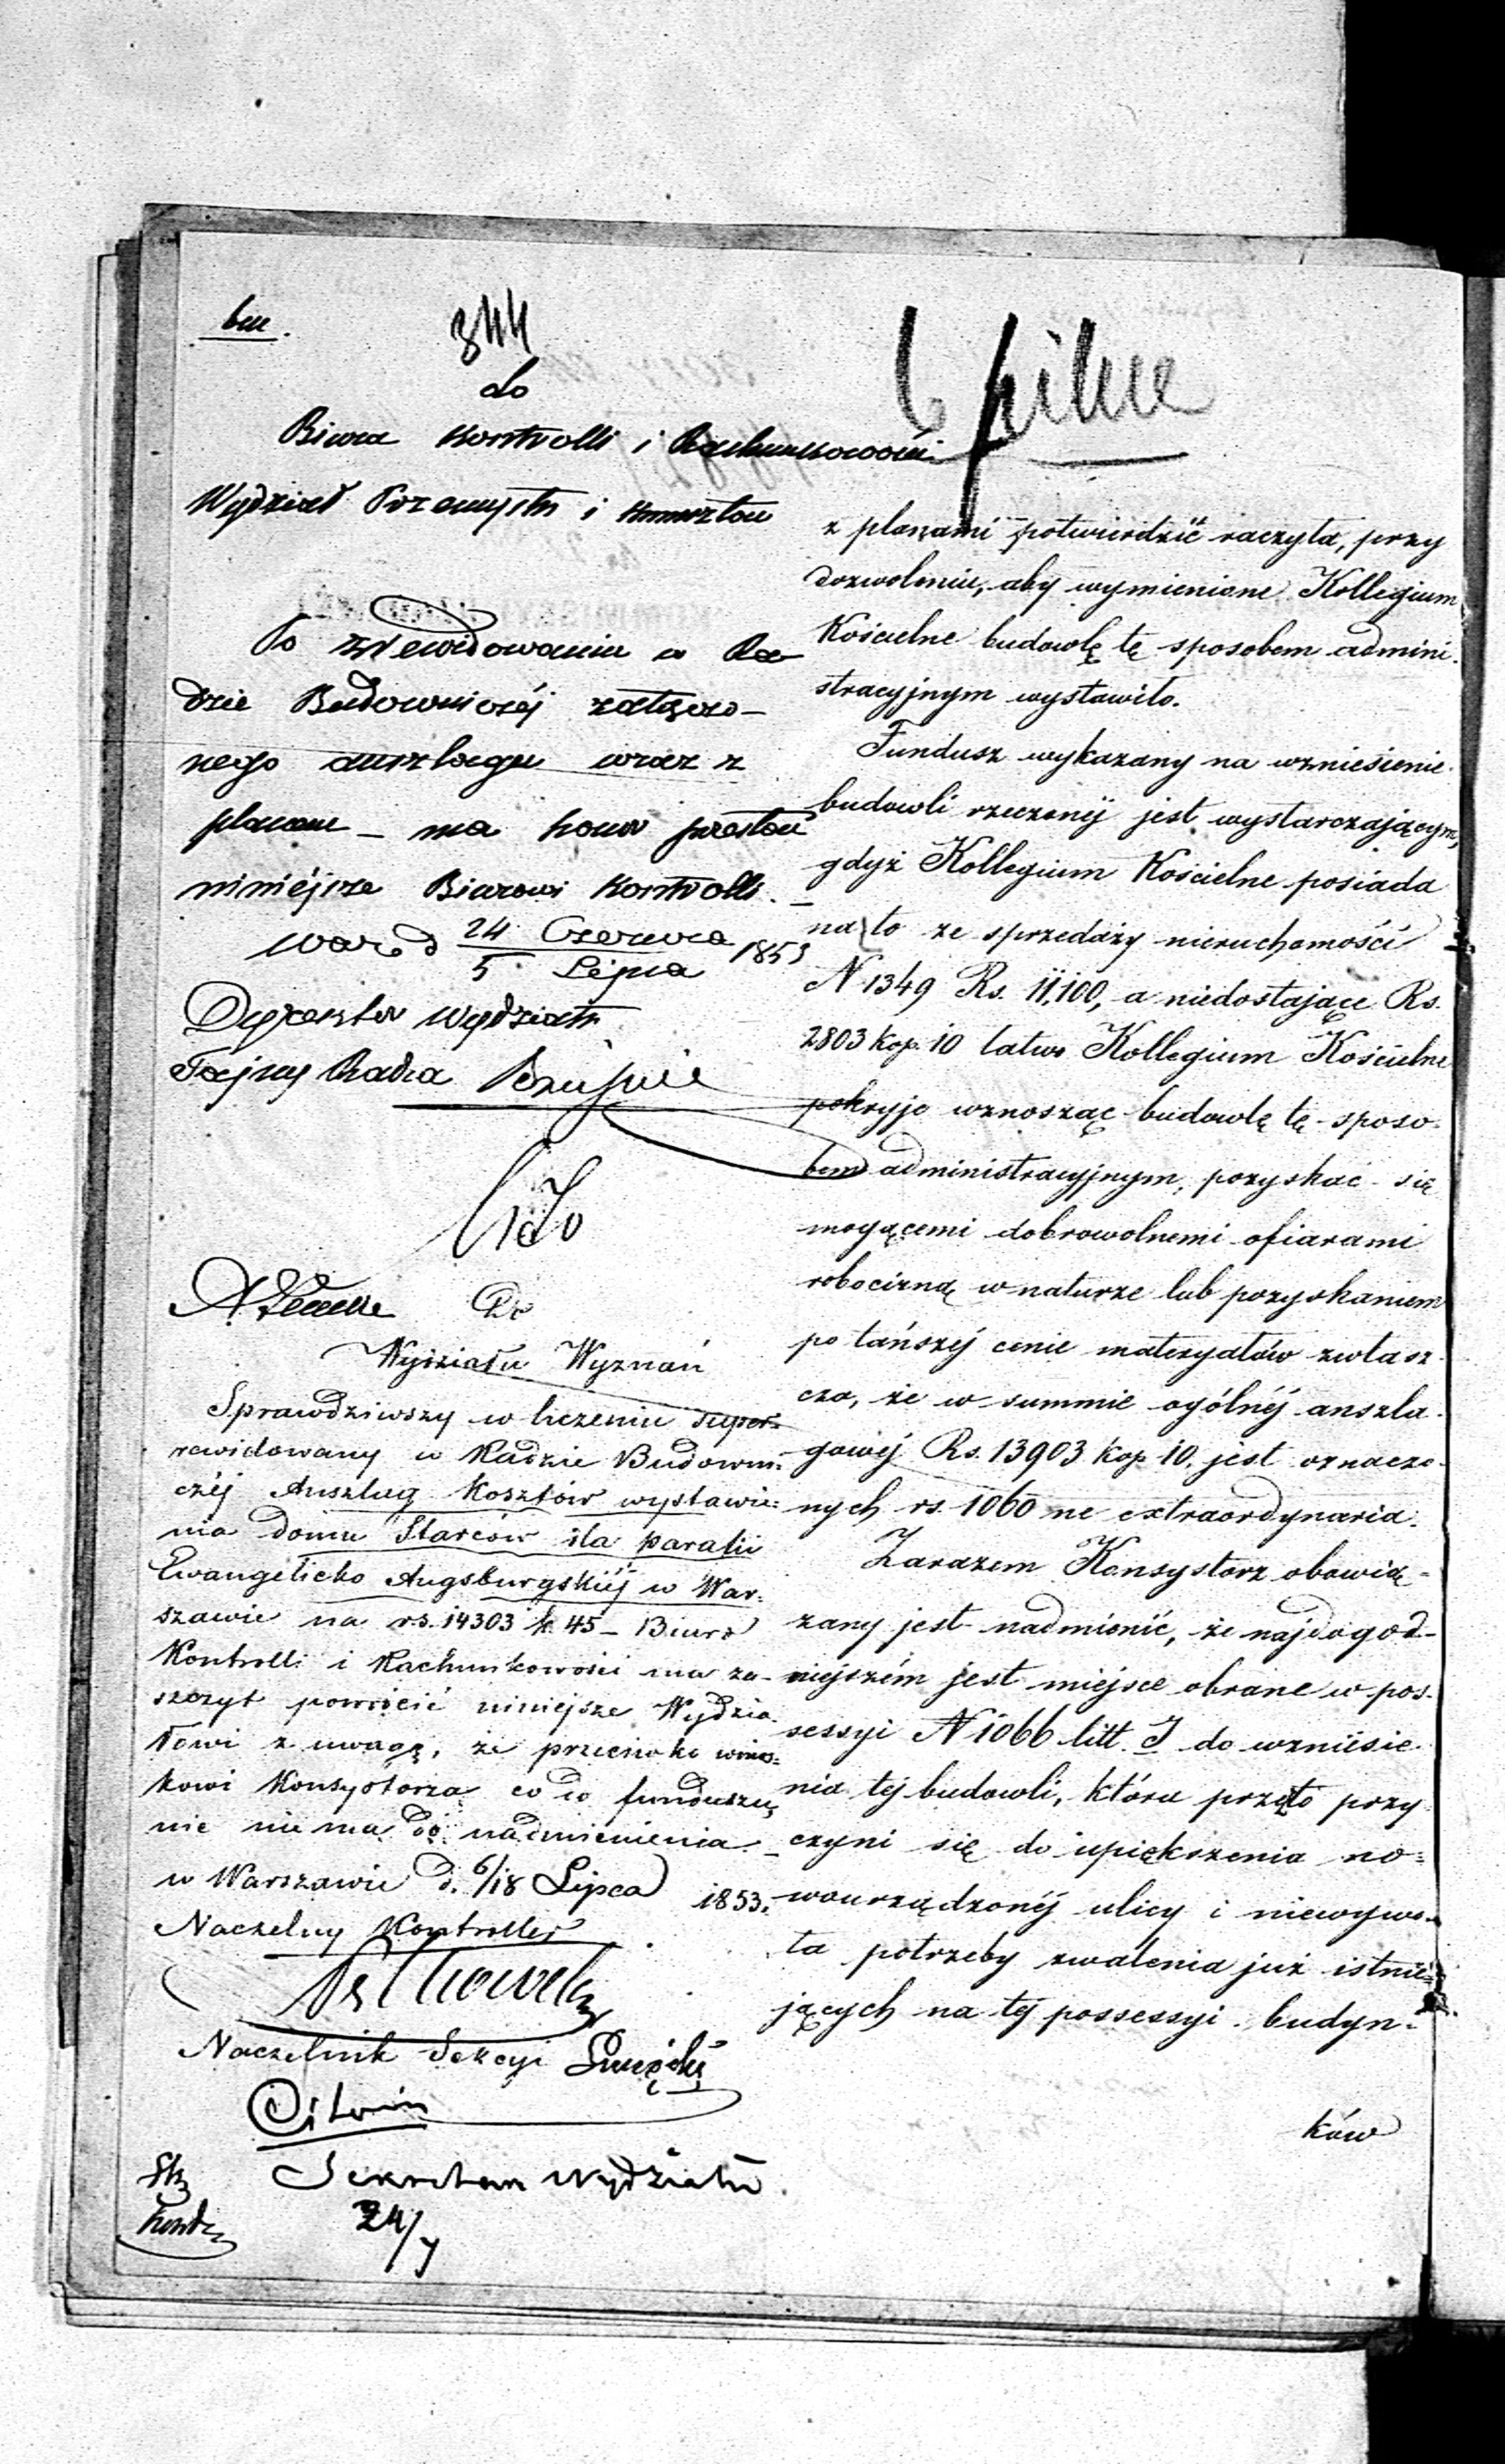 844
do
Biura Kontrolli i Rachunkowości
Wydział Przemysłu i Kunsztów
Po zrewidowaniu w Ra-
dzie Budowniczéj załączo-
nego anszlagu wraz z
planami – ma honor przesłać
niniéjsze Biurowi Kontrolli.
War. d 24 Czerwca / 5 Lipca 1853
Dyrektor Wydziału
Tajny Radca
Do
Wydziału Wyznań
Sprawdziwszy w liczeniu super-
rewidowany w Radzie Budowni-
czéj Anszlag kosztów wystawie-
nia domu Starców dla parafii
Ewangelicko Augsburgskiéj w War-
szawie na rs. 14303 k. 45 – Biuro
Kontrolli i Rachunkowości ma za-
szczyt powrócić niniejsze Wydzia-
łowi z uwagą, że przeciwko wnios-
kowi Konsystorza co do funduszu
nic niema do nadmienienia –
w Warszawie d. 6/18 Lipca 1853.
Naczelny Kontroller
Naczelnik Sekcyi
Sekretarz Wydziału
24/7
pilne
z planami potwierdzić raczyła, przy
dozwoleniu, aby wymienione Kollegium
Kościelne budowlę tę sposobem admini-
stracyjnym wystawiło.
Fundusz wykazany na wzniesienie
budowli rzeczonéj jest wystarczającym,
gdyż Kollegium Kościelne posiada
na to ze sprzedaży nieruchomości
N 1349 Rs. 11,100, a niedostające Rs.
2803 kop. 10 łatwo Kollegium Kościelne
pokryje wznosząc budowlę tę sposo-
bem administracyjnym, pozyskać się
mogącemi dobrowolnemi ofiarami
robocizną w naturze lub pozyskaniem
po tańszéj cenie materyałów zwłasz-
cza, że w summie ogólnéj anszla-
gowéj Rs. 13903 kop 10. jest oznaczo-
nych rs. 1060 na extraordynaria.
Zarazem Konsystorz obowią-
zany jest nadmienić, że najdogod-
niejszém jest miejsce obrane w pos-
sessyi N 1066 litt. J do wzniesie-
nia téj budowli, która przeto przy-
czyni się do upiększenia no-
wourządzonéj ulicy i niewywo-
ła potrzeby zwalenia już istnie-
jących na téj possessyi budyn-
ków